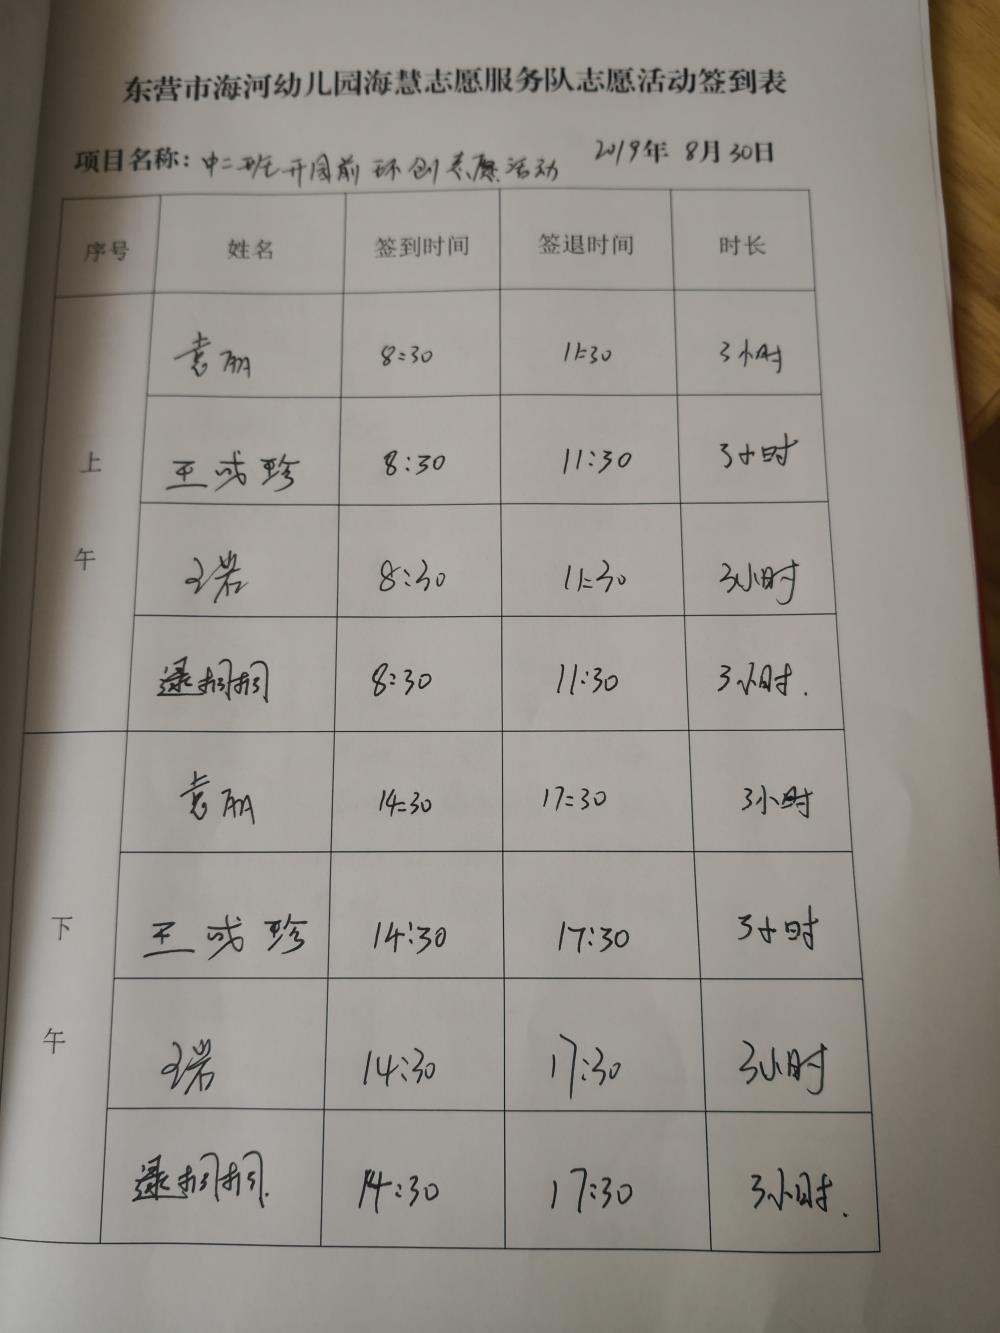 东营市海河幼儿园海慧志愿服务队志愿活动签到表
项目名称：中二班开园前环创志愿活动 2019年8月30日
序号 姓名 签到时间 签退时间 时长
上午
袁丽 8:30 11:30 3小时
王 珍 8:30 11:30 3小时
8:30 11:30 3小时
逯桐桐 8:30 11:30 3小时.
下午
袁丽 14:30 17:30 3小时
王 珍 14:30 17:30 3小时
14:30 17:30 3小时
逯桐桐. 14:30 17:30 3小时.